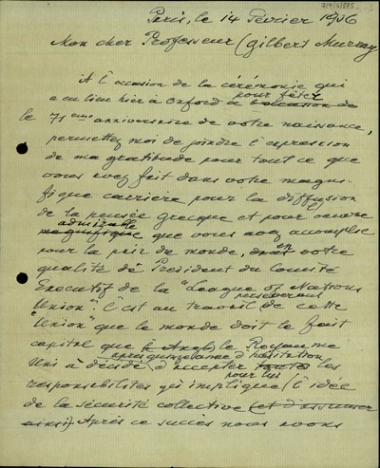 Paris, le 14 Février 1936
Mon cher Professeur (Gilbert Murray
A l'occasion de la cérémonie qui
a eu lieu hier à Oxford pour fêter
le 71ème anniversaire de votre naissance,
permettez moi de joindre l'expression
de ma gratitude pour tout ce que
vous avez fait dans votre magni-
fique carrière pour la diffusion
de la pensée grecque et pour l'oeuvre
admirable
magnifique que vous avez accomplie
pour la paix du monde, en votre
qualité de Président du Comité
Exécutif de la "League of Nations
Union". C'est au travail de cette
"Union" que le monde doit le fait
capital que le Royaume
après quinze ans d'hésitation
Uni a décidé d'accepter les
pour lui
responsabilités qu'implique l'idée
de la sécurité collective (et d'assurer
ainsi) Après ce succès nous avons